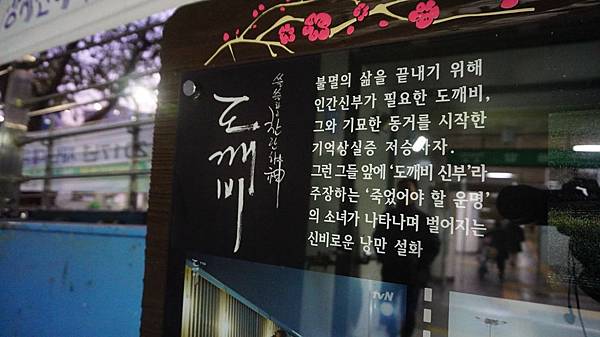 쓸쓸하고 찬란하神
도깨비
불멸의 삶을 끝내기 위해
인간신부가 필요한 도깨비,
그와 기묘한 동거를 시작한
기억상실증 저승사자.
그런 그들 앞에 '도깨비 신부'라
주장하는 '죽었어야 할 운명'
의 소녀가 나타나며 벌어지는
신비로운 낭만 설화
tvN